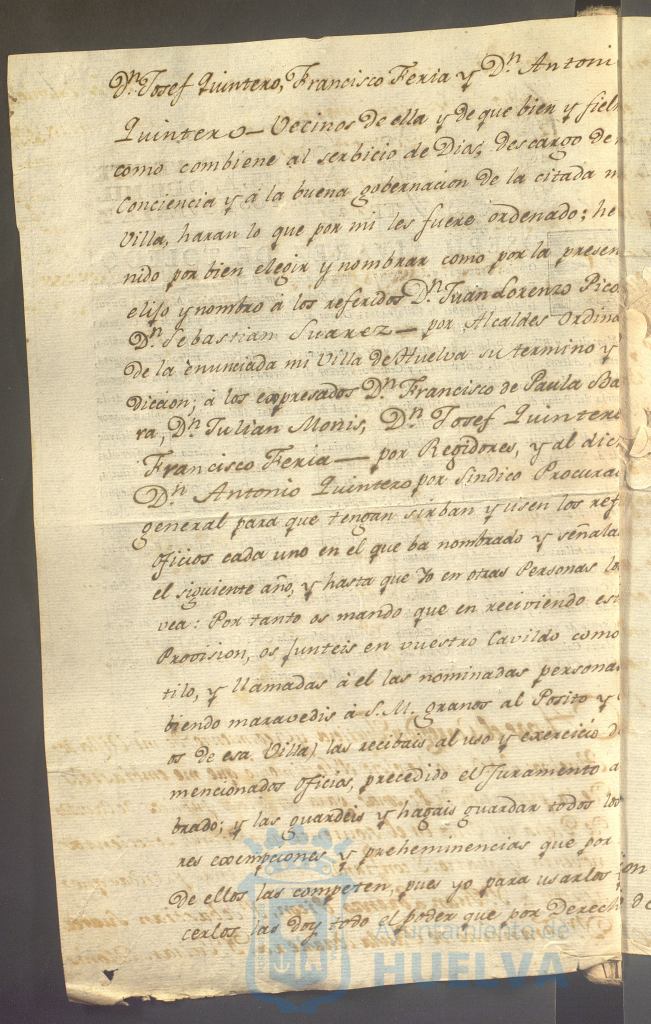 Dn. Josef Quintero, Francisco Feria y Dn. Antoni
Quintero — Vecinos de ella y de que bien y fiel
como combiene al serbicio de Dios, descargo de
Conciencia y á la buena gobernacion de la citada m
Villa, haran lo que por mi les fuere ordenado; he
nido por bien elegir y nombrar como por la presen
elijo y nombro á los referidos Dn. Juan Lorenzo Pico
Dn. Sebastian Suarez — por Alcaldes Ordina
de la enunciada mi Villa de Huelva su termino y
diccion; á los expresados Dn. Francisco de Paula Ba
ra, Dn. Julian Monis, Dn. Josef Quintero
Francisco Feria — por Regidores, y al dic
Dn. Antonio Quintero por Sindico Procura
general para que tengan sirban y usen los ref
oficios cada uno en el que ba nombrado y señala
el siguiente año, y hasta que Yo en otras Personas lo
vea: Por tanto os mando que en reciviendo est
Provision, os junteis en vuestro Cavildo como
tilo, y llamadas á él las nominadas persona
biendo maravedis á S.M. granos al Posito y
os de esa Villa) las recibais al uso y exercicio d
mencionados oficios, precedido el Juramento a
brado; y las guardeis y hagais guardar todos los
res exempciones y preheminencias que por
de ellos las competen, pues yo para usarlos
cerlos las doy todo el poder que por Derech
Ayuntamiento de
HUELVA